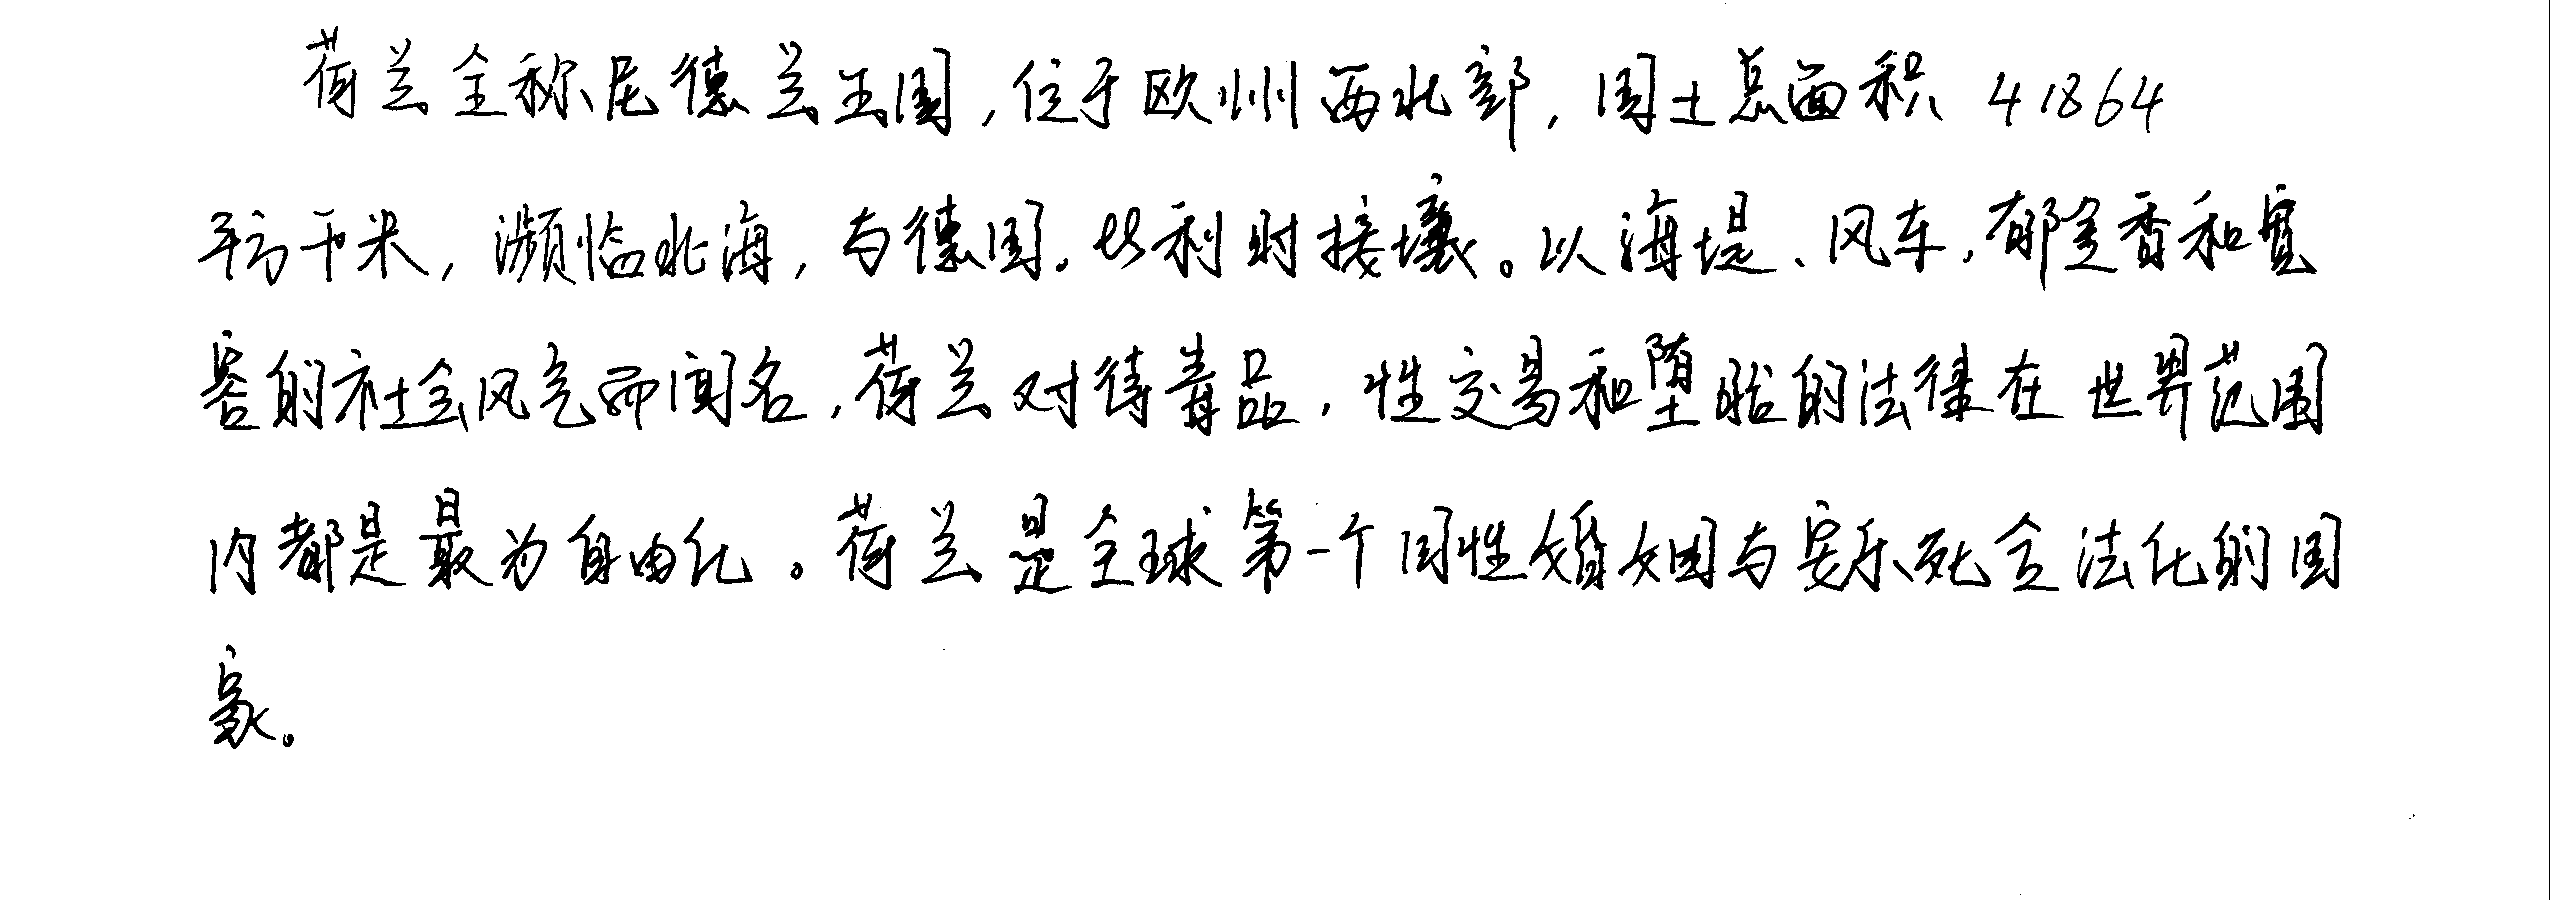 荷兰全称尼德兰王国,位于欧洲西北部,国土总面积 41864
平方千米,濒临北海,与德国、比利时接壤。以海堤、风车,郁金香和宽
容的社会风气而闻名,荷兰对待毒品,性交易和堕胎的法律在世界范围
内都是最为自由化。荷兰是全球第一个同性婚姻与安乐死合法化的国
家。